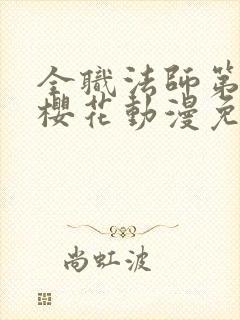 全職法師第
櫻花動漫免
尚虹波